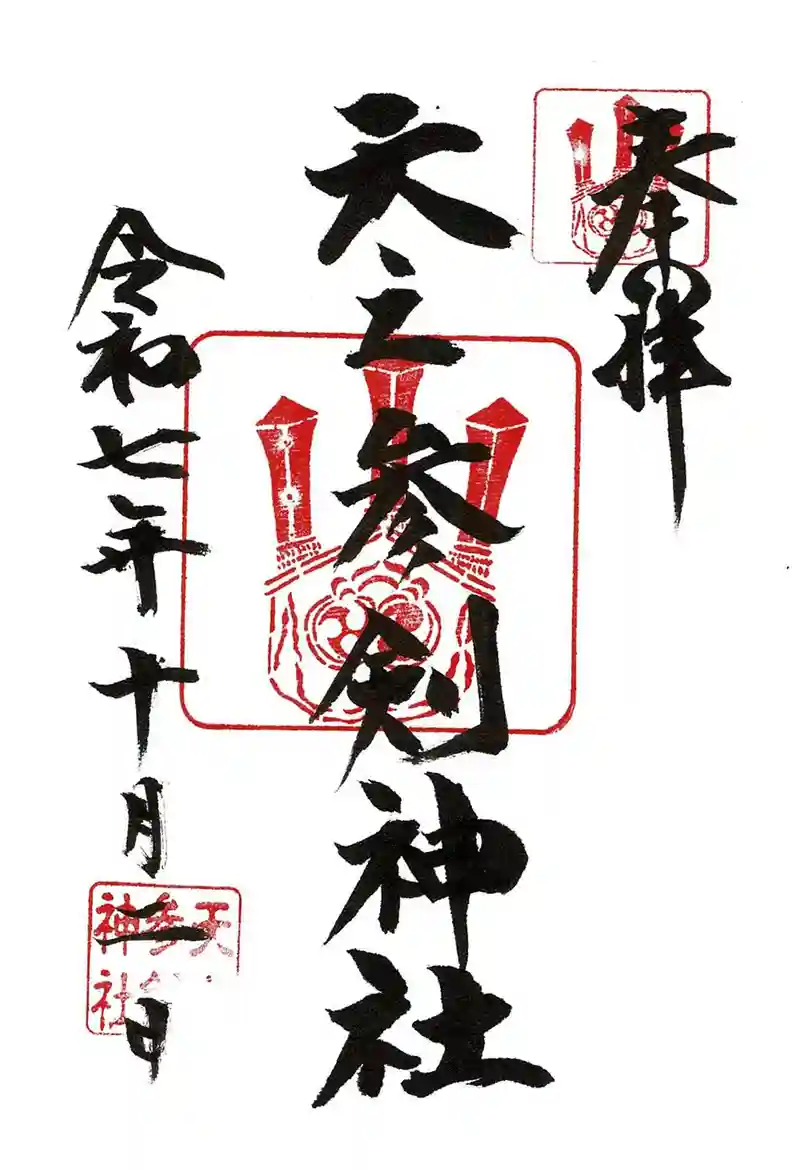 奉拝
天之参剣神社
令和七年十月二日
天
参
神社